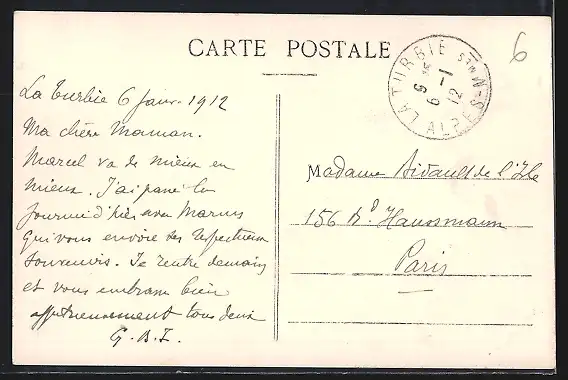 CARTE POSTALE
LA TURBIE
6 -1
12
ALPES-M
6
La Turbie 6 Janv. 1912
Ma chère Maman.
Marcel va de mieux en
mieux. J'ai passé la
journée d'hier avec
qui vous envoie ses respectueux
souvenirs. Je rentre demain
et vous embrasse bien
affectueusement tous deux
G. B. I.
Madame Bidault de l'Isle
156 Bd. Haussmann
Paris